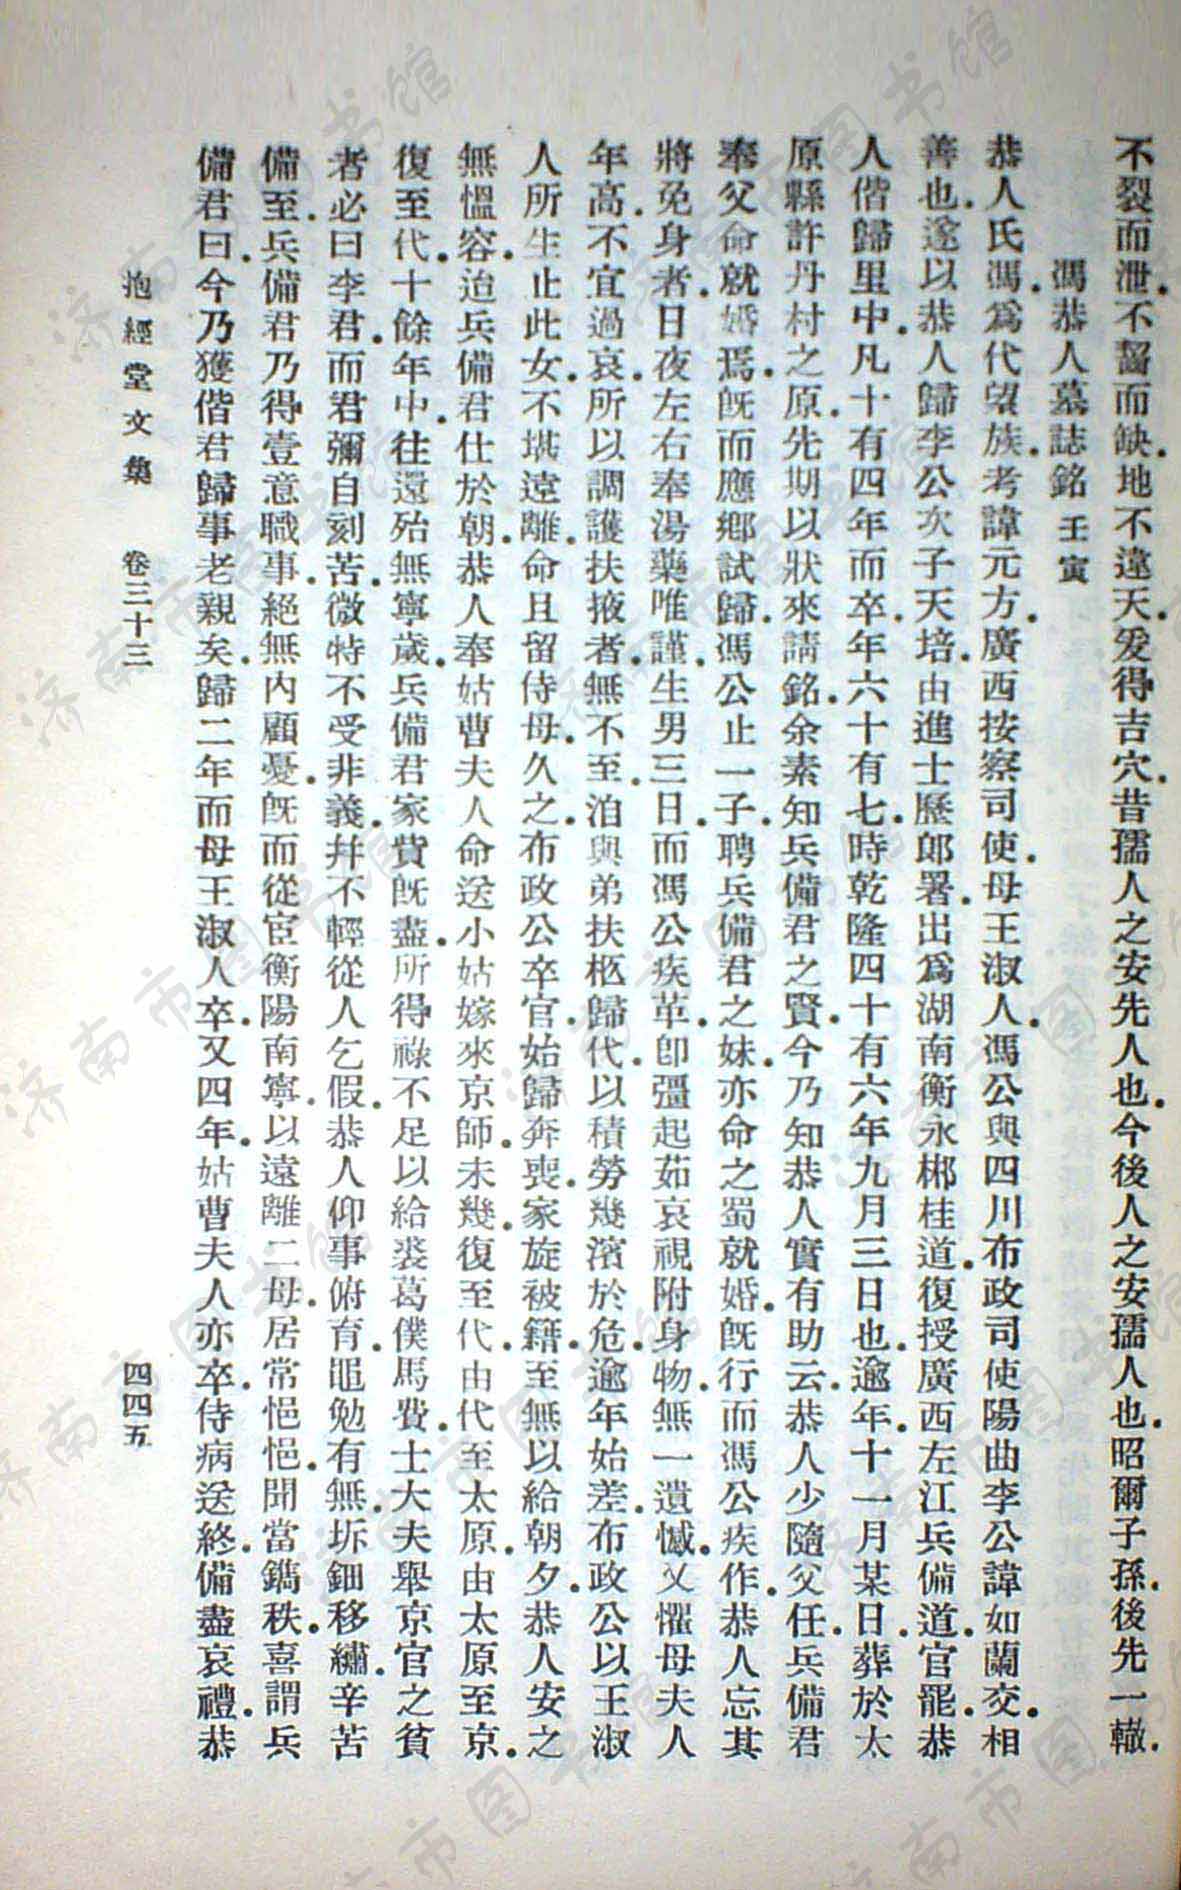 不裂而泄。不齧而缺。地不違天。爰得吉穴。昔孺人之安先人也。今後人之安孺人也。昭爾子孫。後先一轍。
馮恭人墓誌銘 壬寅
恭人氏馮。爲代望族。考諱元方。廣西按察司使。母王淑人。馮公與四川布政司使陽曲李公諱如蘭。交相
善也。遂以恭人歸李公次子天培。由進士歷郎署。出爲湖南衡永郴桂道。復授廣西左江兵備道。官罷。恭
人偕歸里中。凡十有四年而卒。年六十有七。時乾隆四十有六年九月三日也。逾年十一月某日。葬於太
原縣許丹村之原。先期以狀來請銘。余素知兵備君之賢。今乃知恭人實有助云。恭人少隨父任。兵備君
奉父命就婚焉。既而應鄉試歸。馮公止一子。聘兵備君之妹。亦命之蜀就婚。既行而馮公疾作。恭人忘其
將免身者。日夜左右奉湯藥唯謹。生男三日而馮公疾革。即彊起茹哀視附身物。無一遺憾。父懼母夫人
年高。不宜過哀。所以調護扶掖者。無不至。洎與弟扶柩歸代。以積勞幾濱於危。逾年始差。布政公以王淑
人所生止此女。不堪遠離。命且留侍母。久之。布政公卒官。始歸奔喪。家旋被籍。至無以給朝夕。恭人安之
無慍容。迨兵備君仕於朝。恭人奉姑曹夫人命送小姑嫁來京師。未幾。復至代。由代至太原。由太原至京。
復至代。十餘年中。往還殆無寧歲。兵備君家貲旣盡。所得祿不足以給裘葛僕馬費。士大夫舉京官之貧
者必曰李君。而君彌自刻苦。微特不受非義。幷不輕從人乞假。恭人仰事俯育。黽勉有無。坼鈿移繡。辛苦
備至。兵備君乃得壹意職事。絕無內顧憂。旣而從宦衡陽南寧。以遠離二母。居常悒悒。聞當鐫秩。喜謂兵
備君曰。今乃獲偕君歸事老親矣。歸二年而母王淑人卒。又四年。姑曹夫人亦卒。侍病送終。備盡哀禮。恭
抱經堂文集 卷三十三 四四五
济南市图书馆